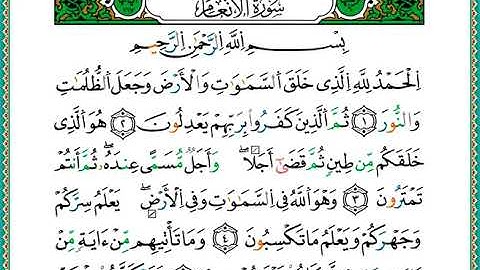 سُورَةُ الْأَنْعَامِ
بِسْمِ اللَّهِ الرَّحْمَٰنِ الرَّحِيمِ
الْحَمْدُ لِلَّهِ الَّذِي خَلَقَ السَّمَٰوَٰتِ وَالْأَرْضَ وَجَعَلَ الظُّلُمَٰتِ
وَالنُّورَ ١ ثُمَّ الَّذِينَ كَفَرُوا بِرَبِّهِمْ يَعْدِلُونَ ٢ هُوَ الَّذِي
خَلَقَكُم مِّن طِينٍ ثُمَّ قَضَىٰٓ أَجَلًا ۖ وَأَجَلٌ مُّسَمًّى عِندَهُۥ ۖ ثُمَّ أَنتُمْ
تَمْتَرُونَ ٣ وَهُوَ اللَّهُ فِي السَّمَٰوَٰتِ وَفِي الْأَرْضِ ۖ يَعْلَمُ سِرَّكُمْ
وَجَهْرَكُمْ وَيَعْلَمُ مَا تَكْسِبُونَ ٤ وَمَا تَأْتِيهِم مِّنْ ءَايَةٍ مِّنْ